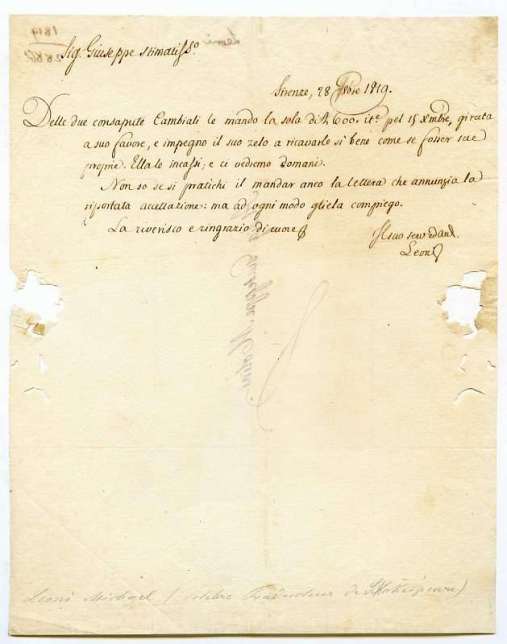 Sig. Giuseppe Stimatiss.o
Firenze, 28 8bre 1819.
Delle due consapute Cambiali le mando la sola di 600. pel 15 Xmbre, girata
a suo favore, e impegno il suo zelo a ricavarlo sì bene come se fosser sue
proprie. Ella lo incassi; e ci vedremo domani.
Non so se si pratichi il mandar anco la lettera che annunzia la
riportata accettazione: ma ad ogni modo gliela compiego.
La riverisco e ringrazio di cuore
Il suo serv ed am.
Leoni
Leoni Michael (célèbre Traducteur de Shakespeare)